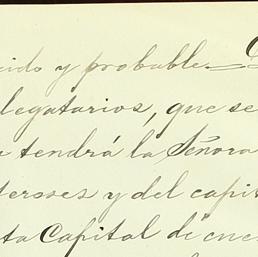 cido y probable
legatarios, que se
tendrá la Señora
tereses y del capit
ta Capital de